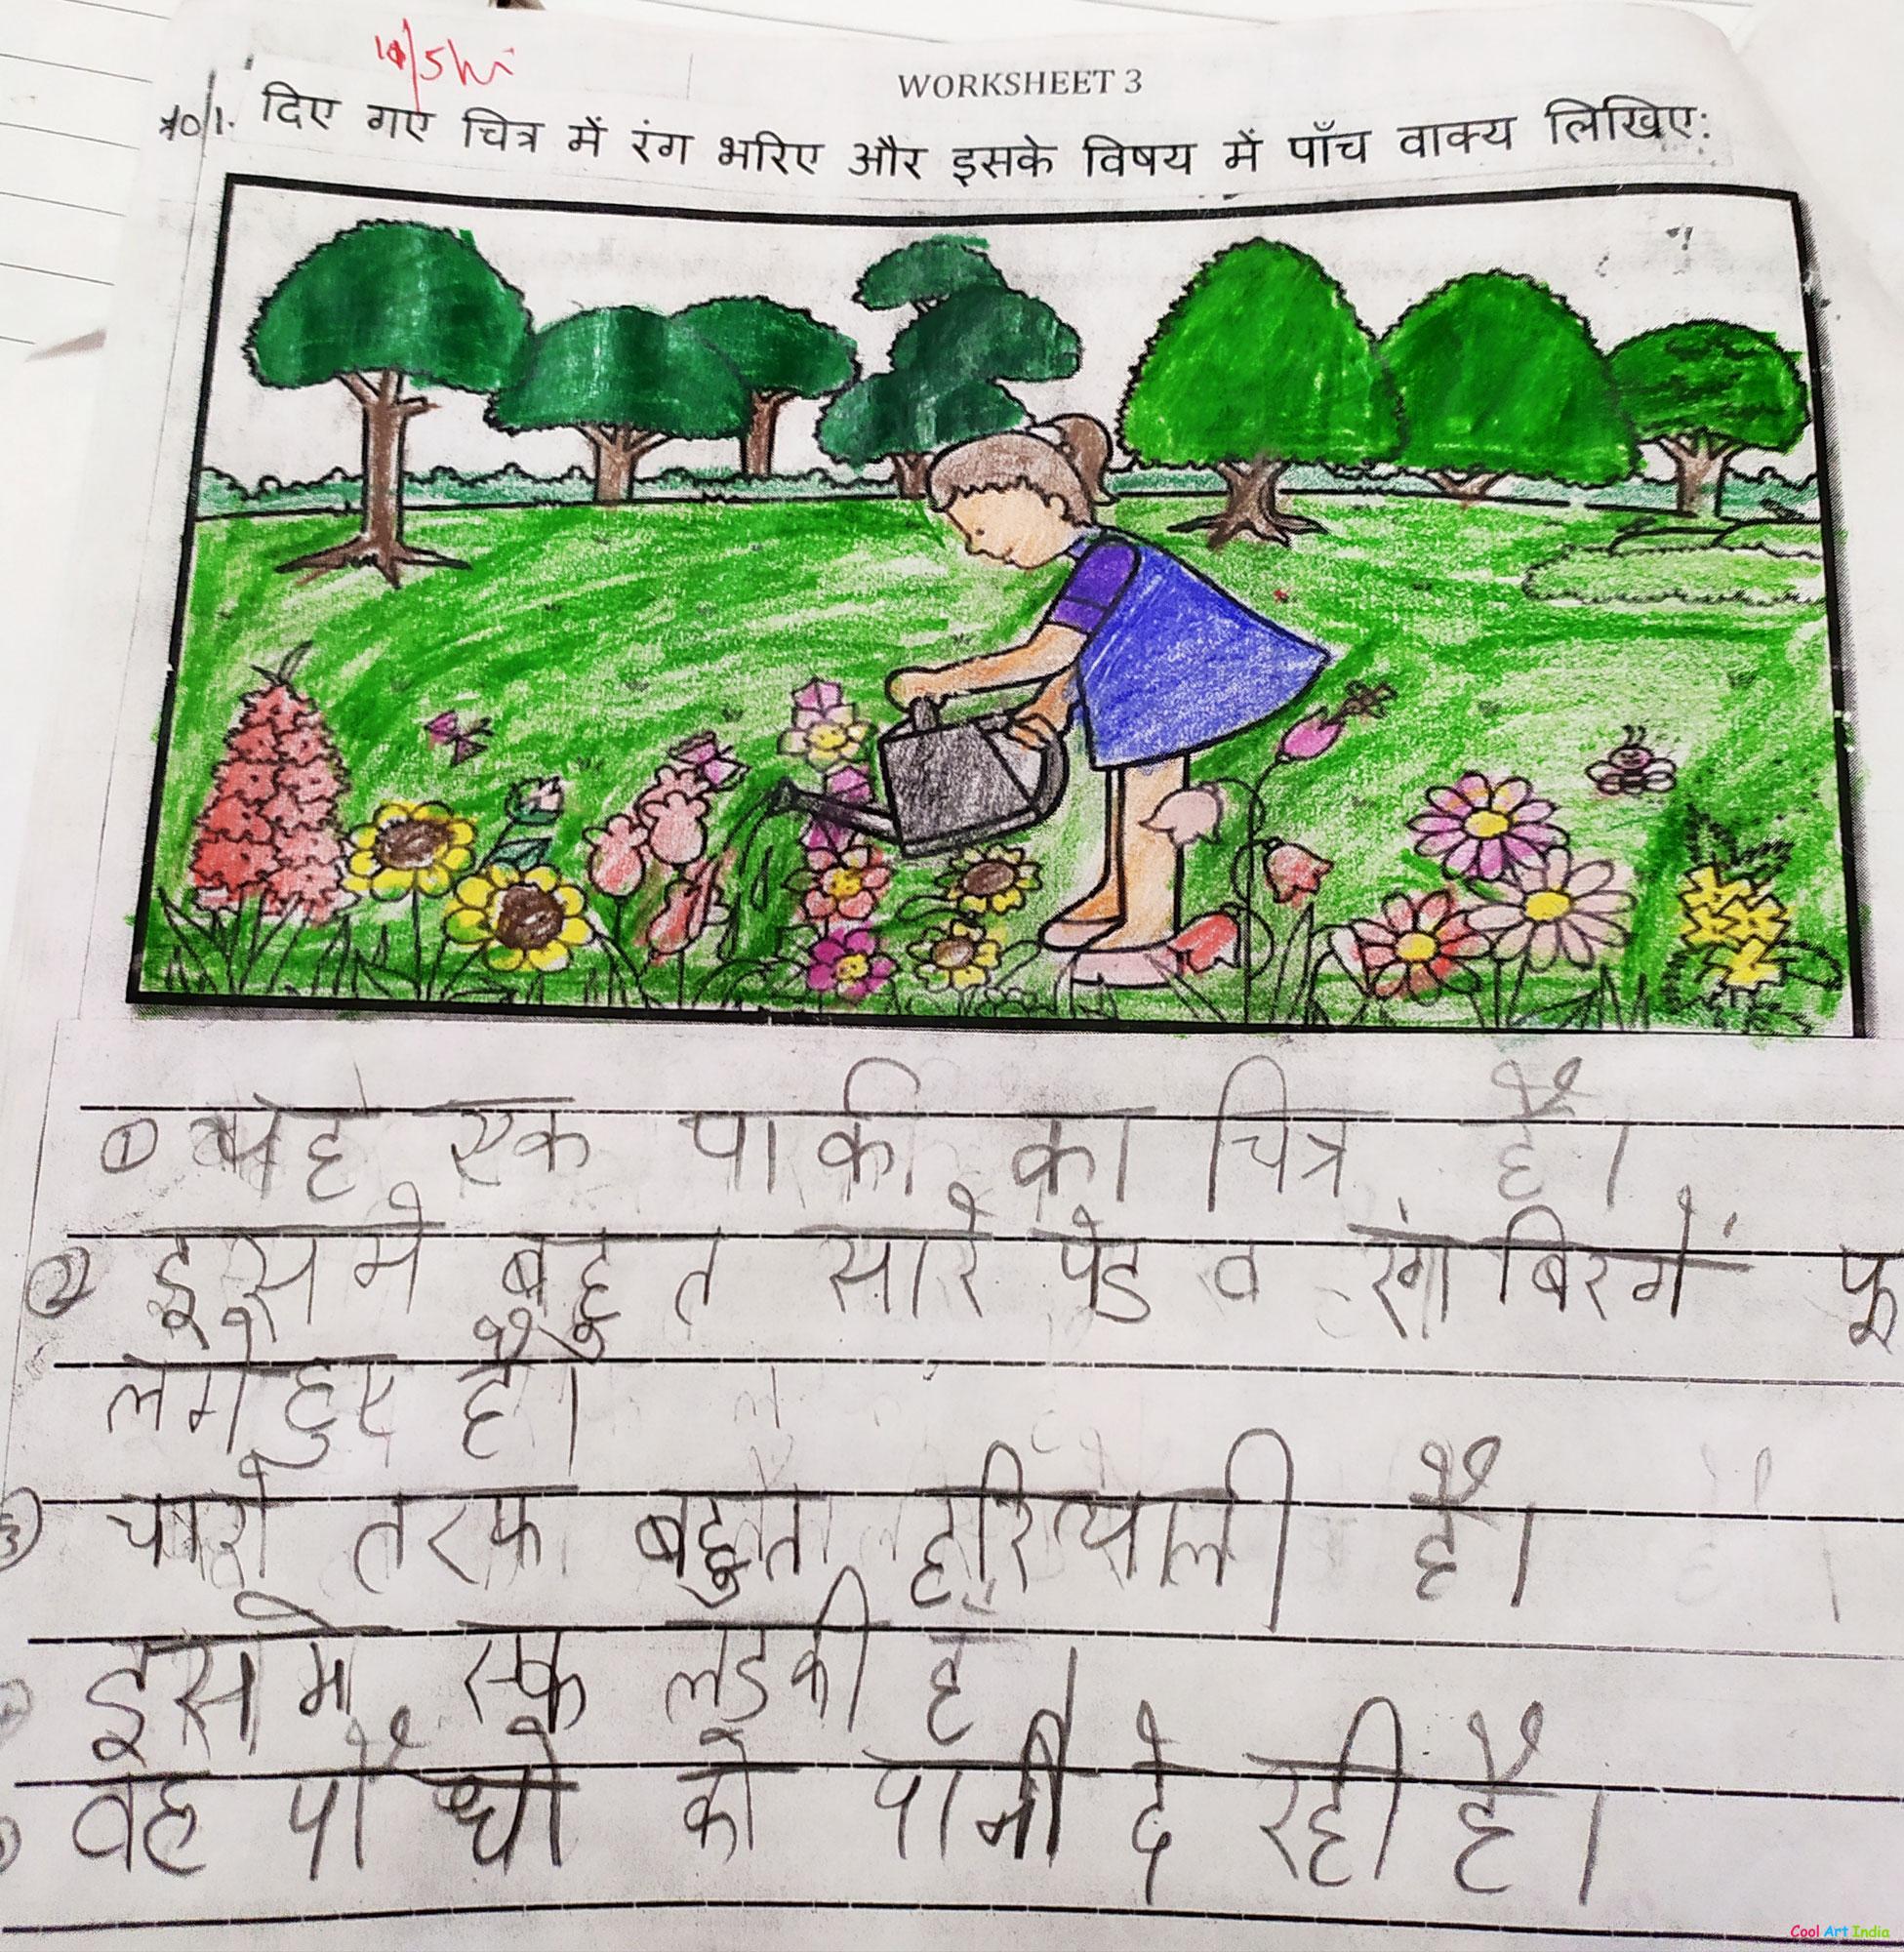 WORKSHEET 3
1. दिए गए चित्र में रंग भरिए और इसके विषय में पाँच वाक्य लिखिए:
① यह एक पार्क का चित्र है।
② इसमे बहुत सारे पेड व रंग बिरगें फू
लगे हुए है।
3) चारो तरफ बहुत हरियाली है।
इसमे एक लडकी है ।
वह पौधो को पानी दे रही है।
Cool Art India